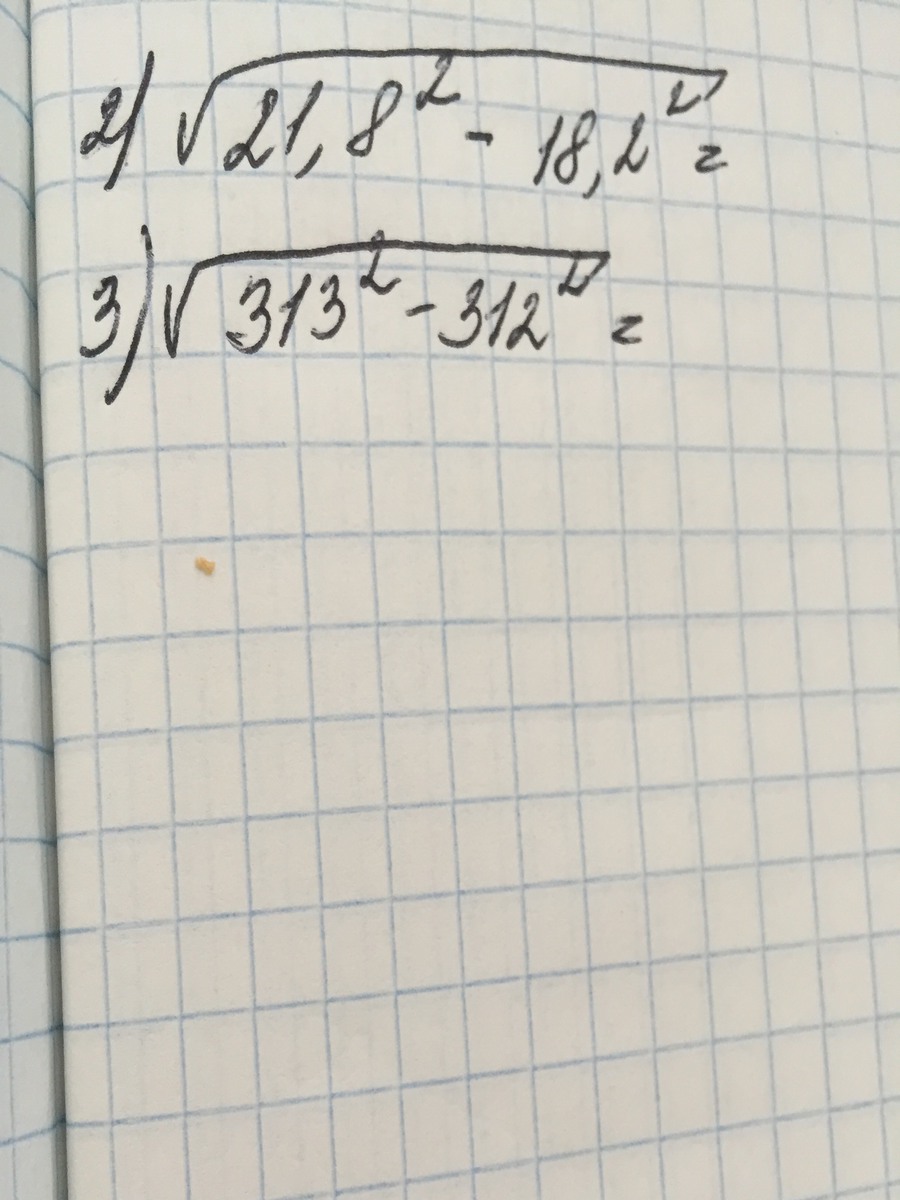 2) √21,8² - 18,2² =
3) √313² - 312² =